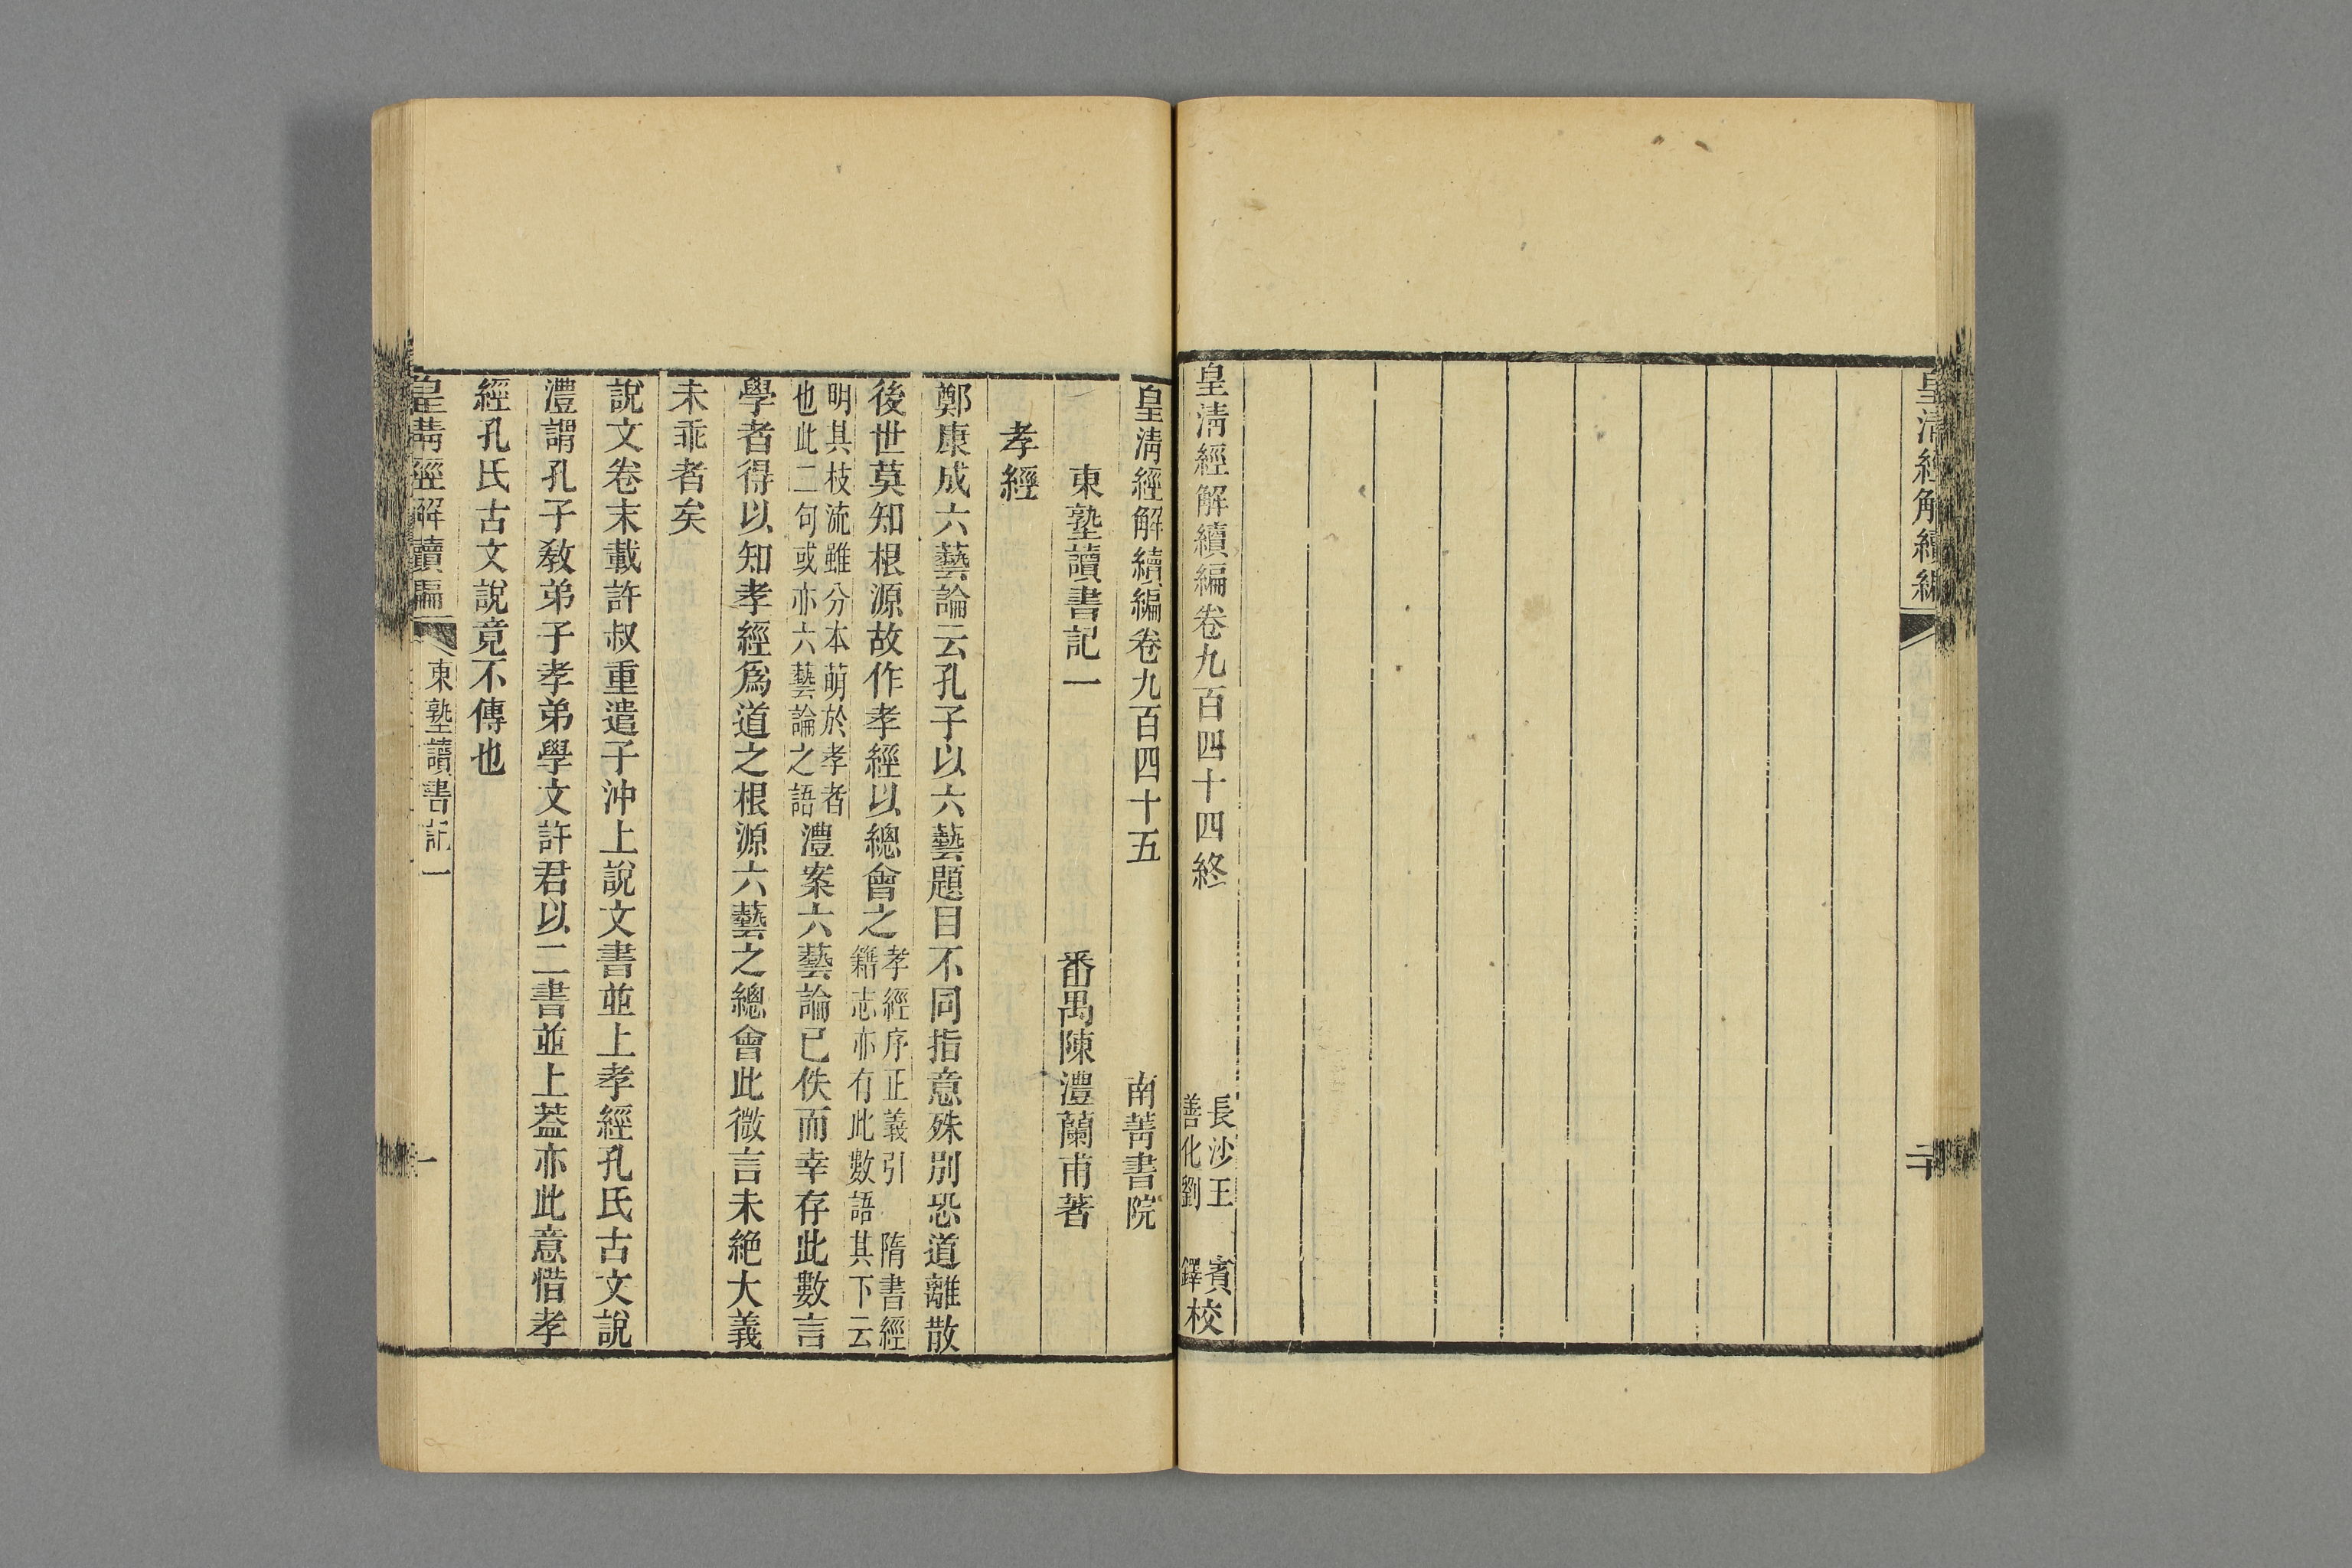 皇清經解續編
二十
皇清經解續編卷九百四十四終
長沙王 賓
善化劉 鐸
校
皇清經解續編卷九百四十五 南菁書院
東塾讀書記一 番禺陳澧蘭甫著
孝經
鄭康成六藝論云孔子以六藝題目不同指意殊別恐道離散
後世莫知根源故作孝經以總會之
孝經序正義引 隋書經
籍志亦有此數語其下云
明其枝流雖分本萌於孝者
也此二句或亦六藝論之語
澧案六藝論已佚而幸存此數言
學者得以知孝經爲道之根源六藝之總會此微言未絶大義
未乖者矣
說文卷末載許叔重遣子沖上說文書並上孝經孔氏古文說
澧謂孔子教弟子孝弟學文許君以二書並上葢亦此意惜孝
經孔氏古文說竟不傳也
皇清經解續編
東塾讀書記一
一